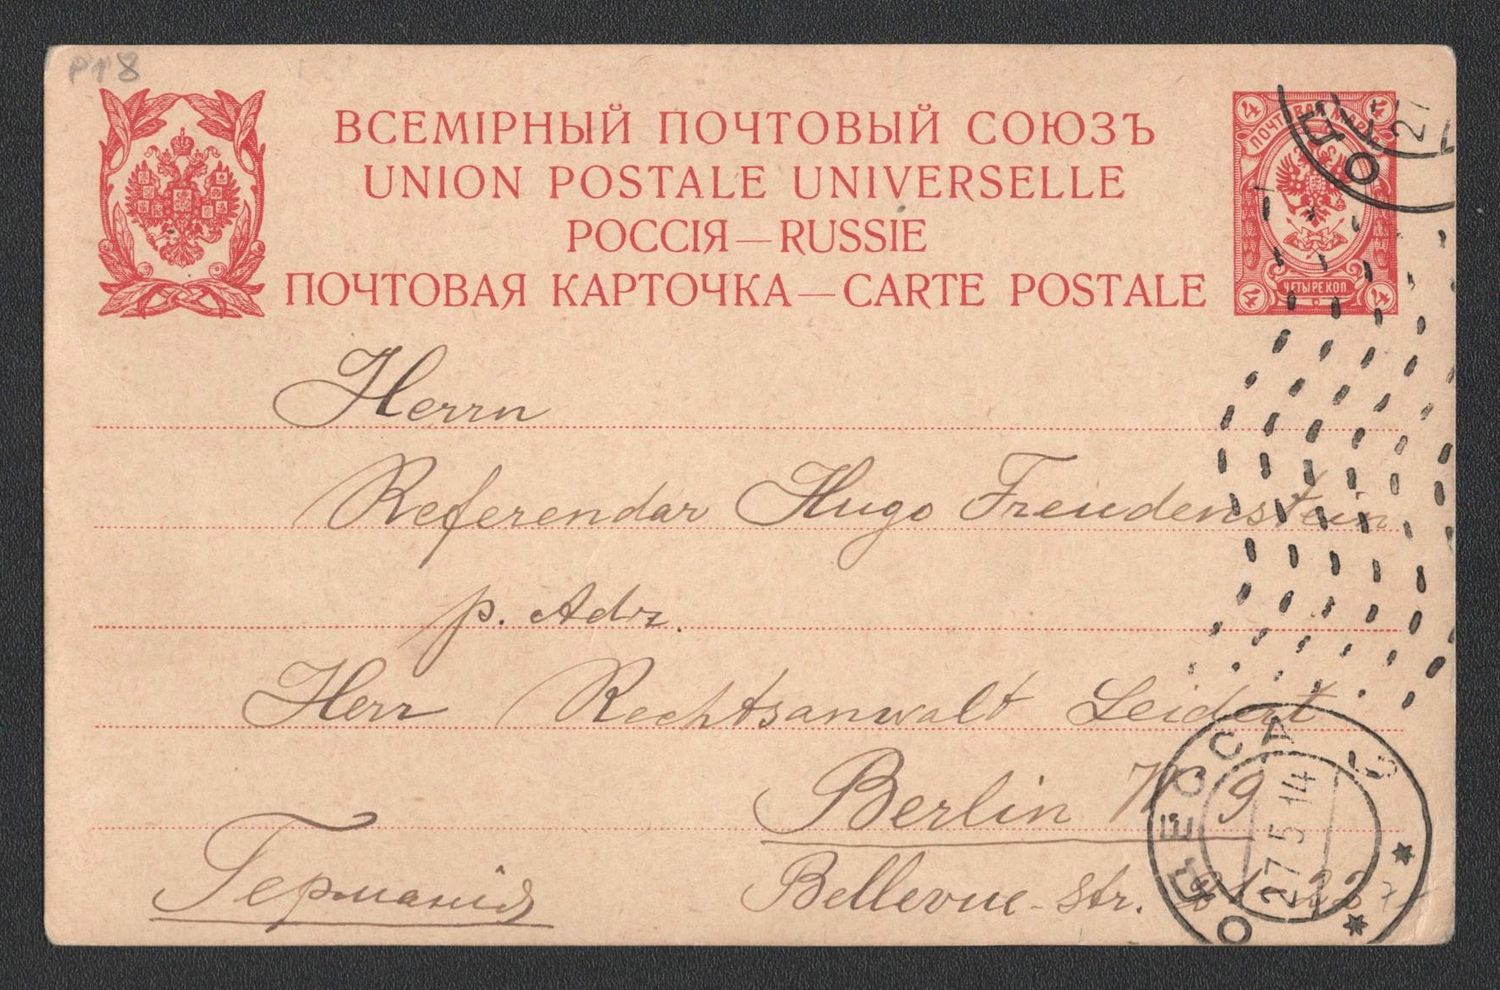 P18
ВСЕМІРНЫЙ ПОЧТОВЫЙ СОЮЗЪ
UNION POSTALE UNIVERSELLE
РОССІЯ—RUSSIE
ПОЧТОВАЯ КАРТОЧКА—CARTE POSTALE
4 4
ПОЧТ
ЧЕТЫРЕ КОП
4 4
Herrn
Referendar Hugo Freudenstein
p. Adr.
Herr Rechtsanwalt Leidert
Berlin W 9
Bellevue-Str.
Германія
ОДЕССА
27 5 14